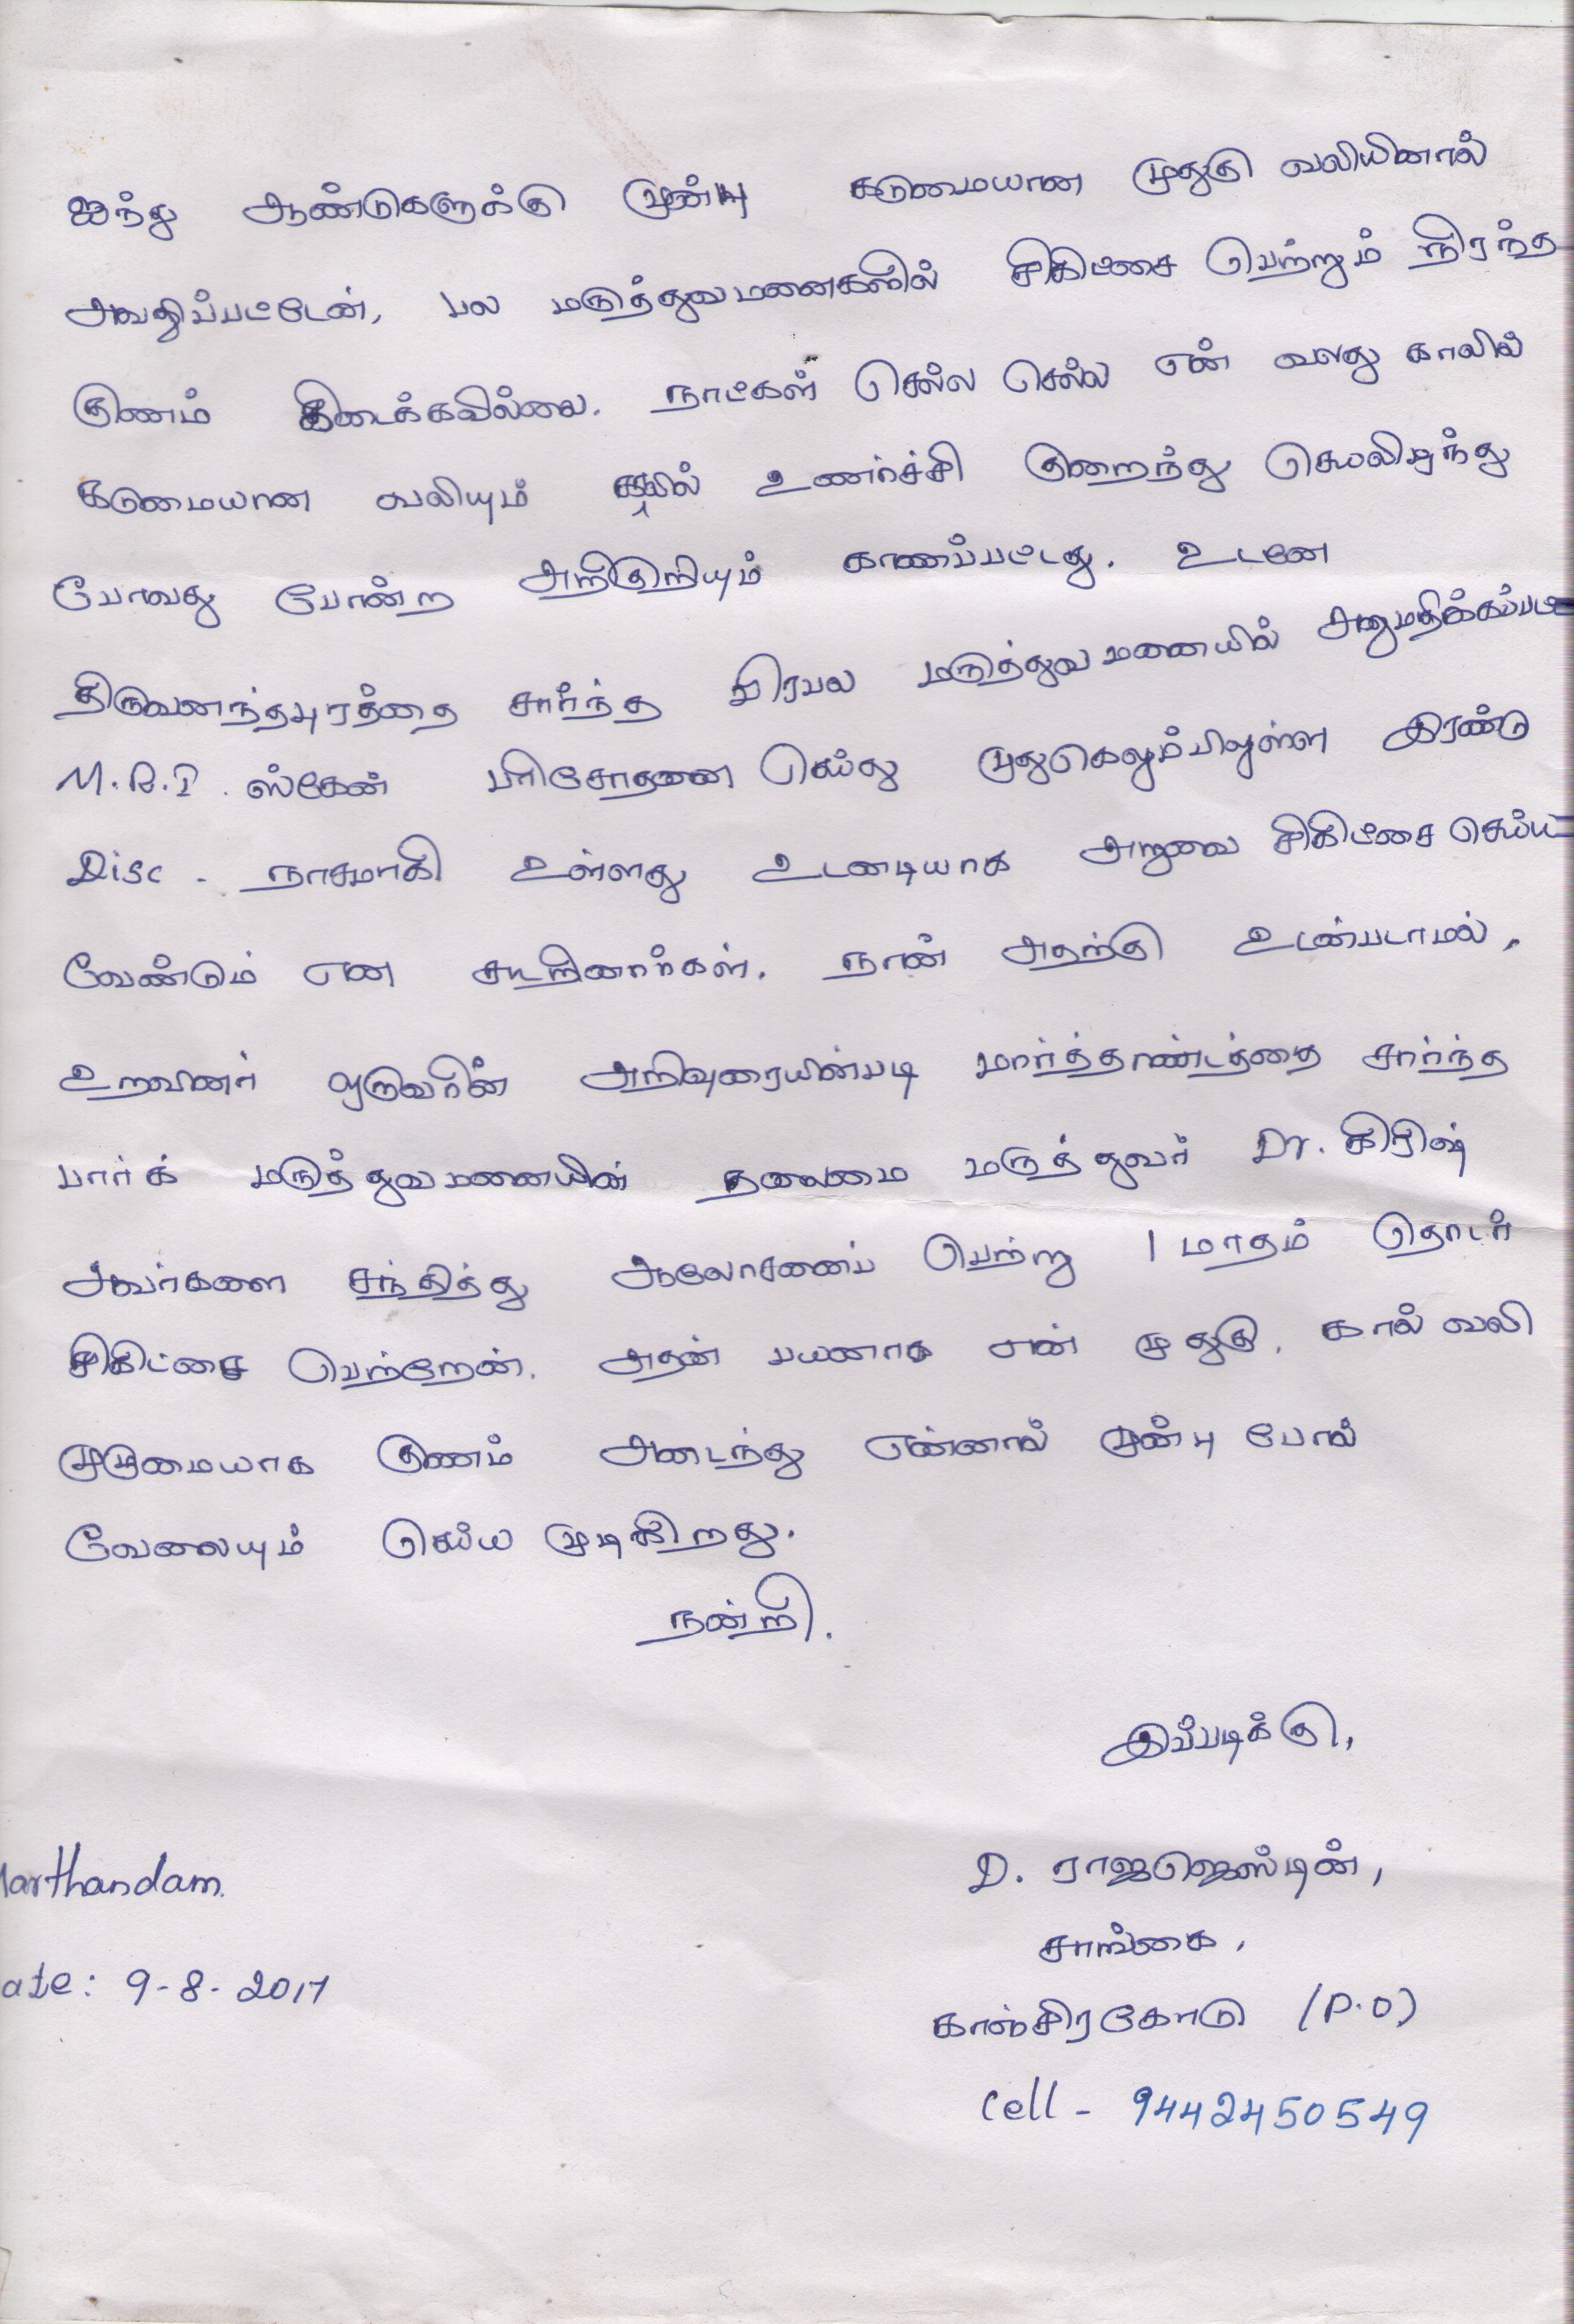 ஐந்து ஆண்டுகளுக்கு முன்பு கடுமையான முதுகு வலியினால்
அவதிப்பட்டேன், பல மருத்துவமனைகளில் சிகிட்சை பெற்றும் நிரந்த
குணம் கிடைக்கவில்லை. நாட்கள் செல்ல செல்ல என் வலது காலில்
கடுமையான வலியும் உணர்ச்சி குறைந்து செயலிழந்து
போவது போன்ற அறிகுறியும் காணப்பட்டது. உடனே
திருவனந்தபுரத்தை சார்ந்த பிரபல மருத்துவமணையில் அனுமதிக்கப்பட்
M.R.I. ஸ்கேன் பரிசோதனை செய்து முதுகெலும்பிலுள்ள இரண்டு
Disc - நாசமாகி உள்ளது உடனடியாக அறுவை சிகிட்சை செய்ய
வேண்டும் என கூறினார்கள். நான் அதற்கு உடன்படாமல்,
உறவினர் ஒருவரின் அறிவுரையின்படி மார்த்தாண்டத்தை சார்ந்த
பார்க் மருத்துவமணையின் தலைமை மருத்துவர் Dr. கிரிஷ்
அவர்களை சந்தித்து ஆலோசணைப் பெற்று 1 மாதம் தொடர்
சிகிட்சை பெற்றேன். அதன் பயனாக என் முதுகு, கால் வலி
முழுமையாக குணம் அடைந்து என்னால் முன்பு போல்
வேலையும் செய்ய முடிகிறது.
நன்றி.
இப்படிக்கு,
D. ராஜஜெஸ்டின்,
சாங்கை,
காஞ்சிரகோடு (P.O)
Cell - 9442450549
Marthandam.
ate: 9-8-2017